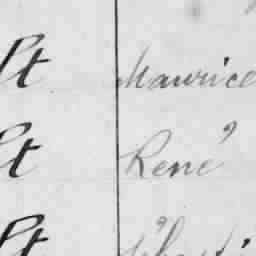 lt Maurice
lt René
lt